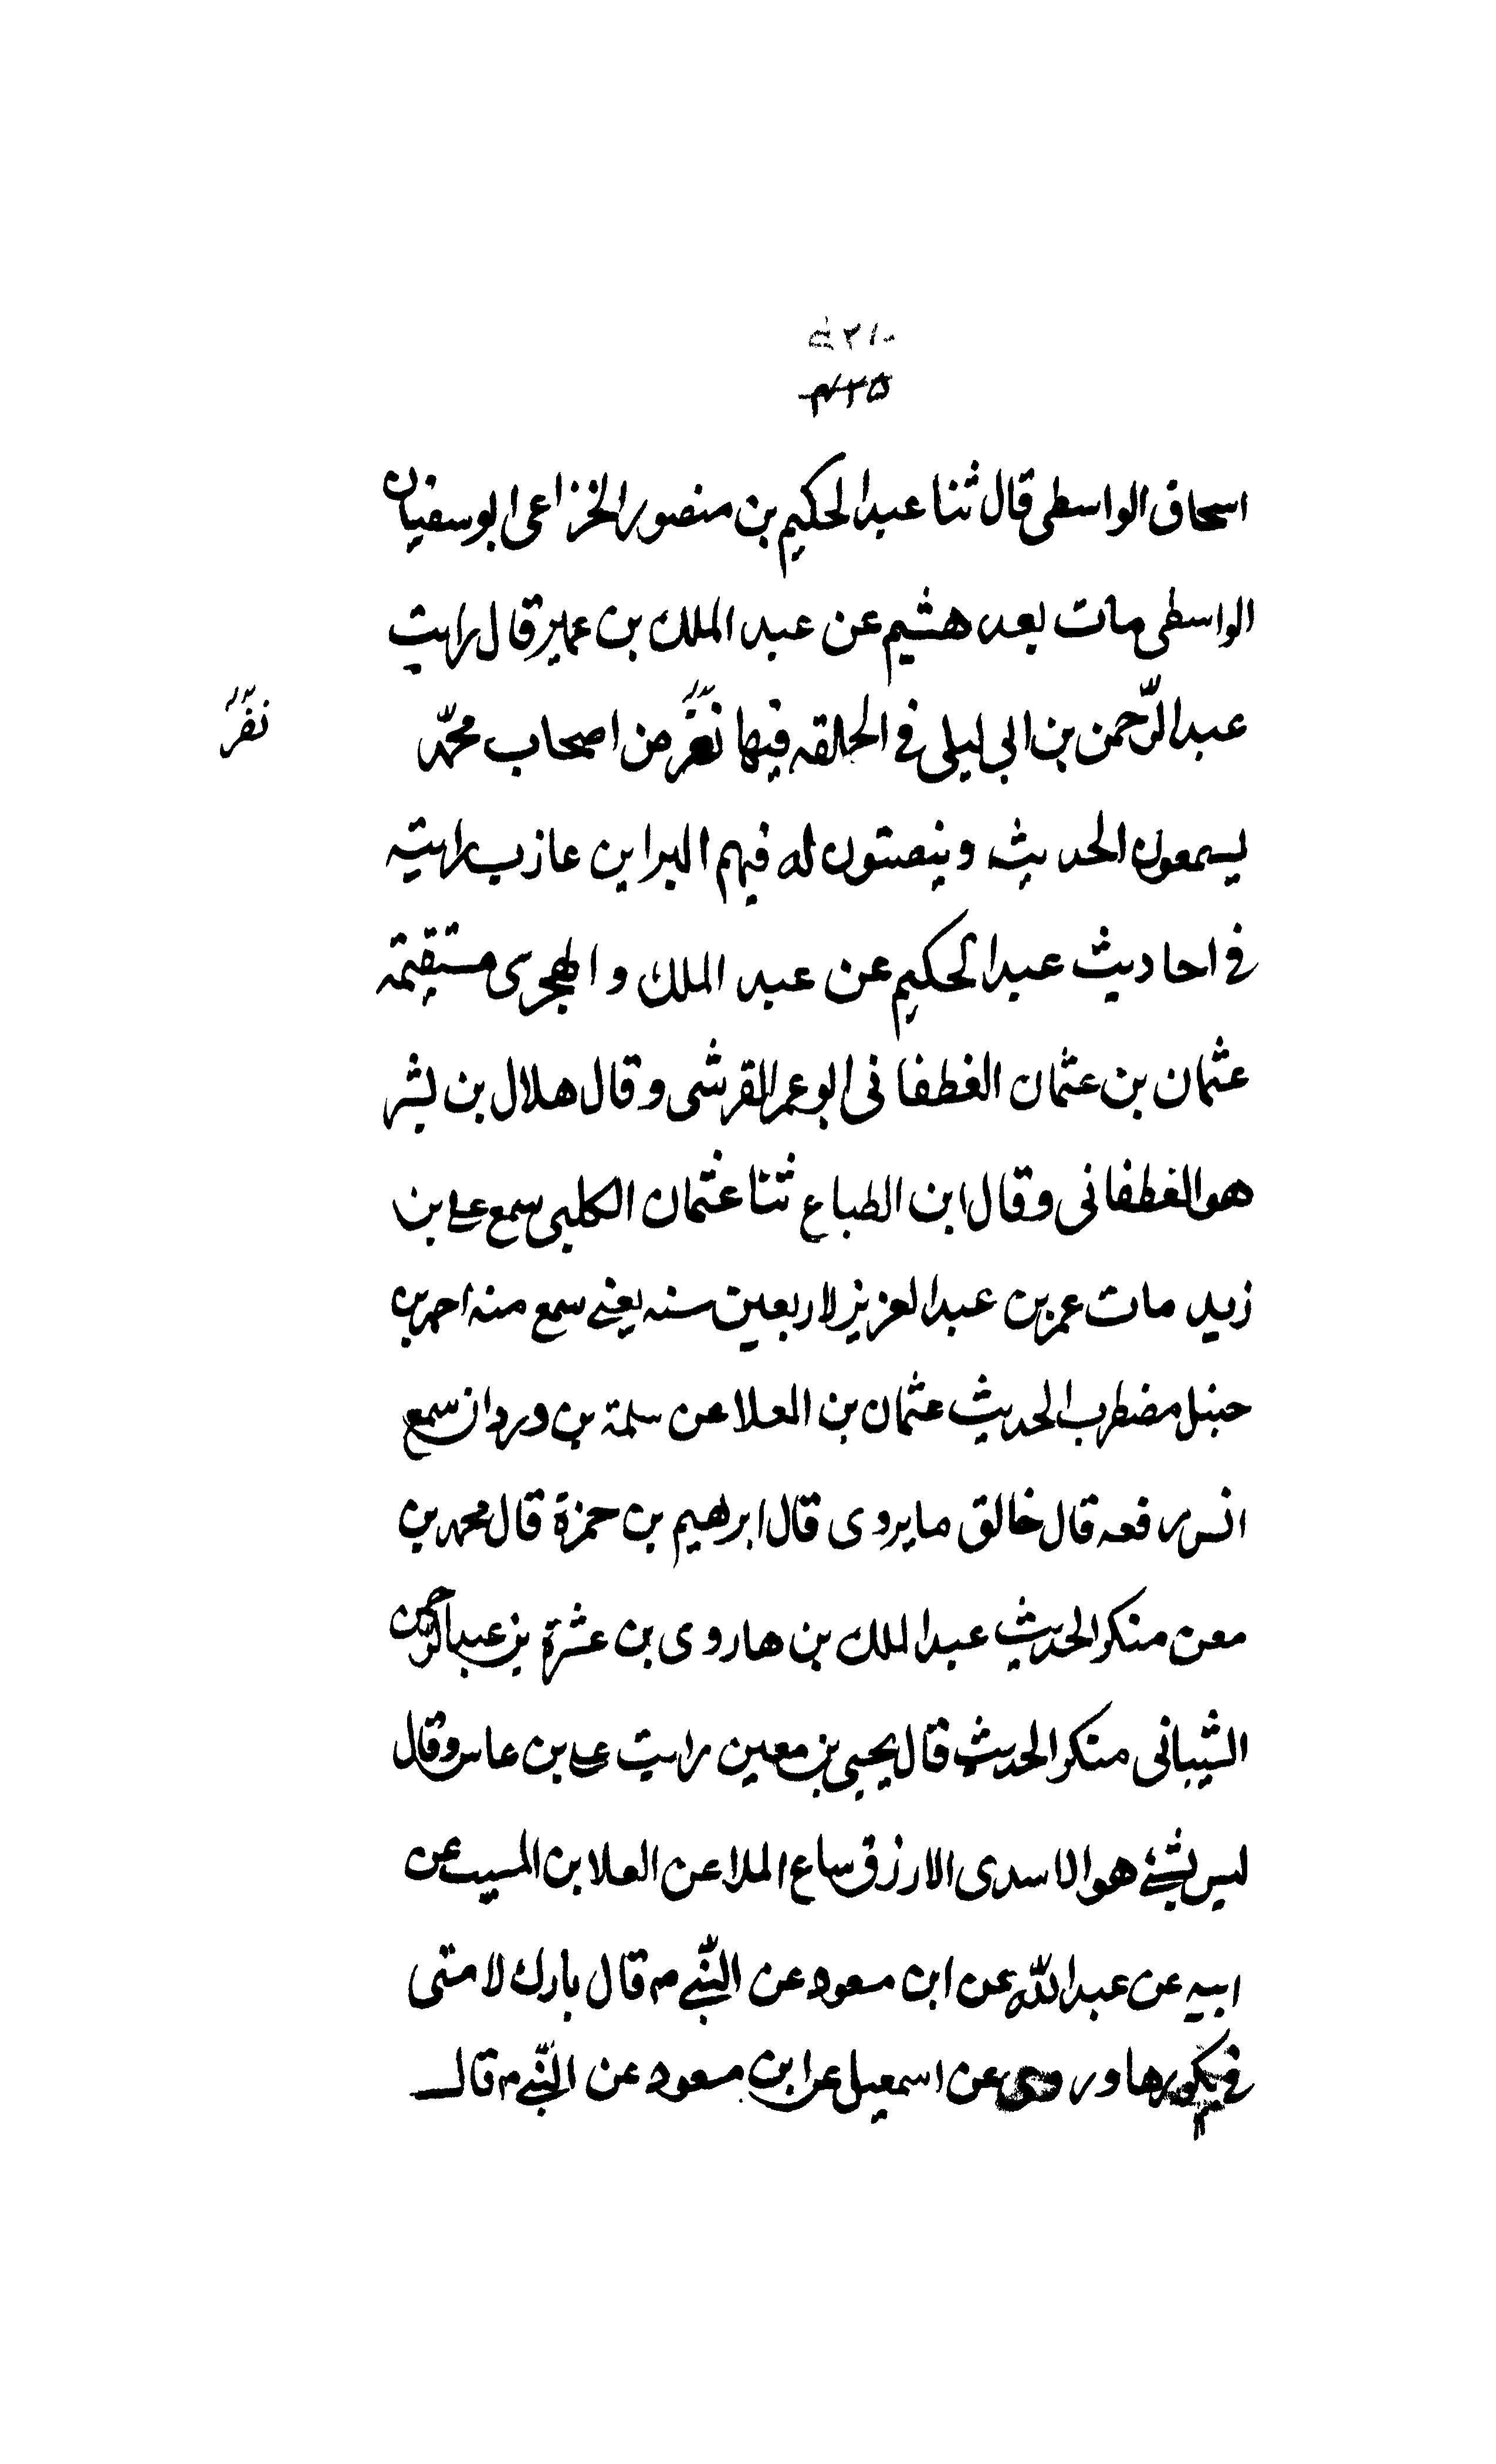 ۲۱۰
۴۲۵
اسحاق الواسطى قال ثنا عبدالحكيم بن منصور الخزاعى ابو سفيان
الواسطى مات بعد هشيم عن عبد الملك بن عمير قال رايت
عبد الرّحمن بن ابى ليلى فى الحلقه فيها نفر من اصحاب محمّد
نفر
يسمعون الحديث وينصتون له فيهم البرا بن عازب رايته
فى احاديث عبدالحكيم عن عبد الملك و الهجرى مستقيمة
عثمان بن عثمان الغطفانى ابو عمر القرشى وقال هلال بن بشر
هو الغطفانى وقال ابن الطباع ثنا عثمان الكلبى سمع على بن
زيد مات عمر بن عبد العزيز لاربعين سنه يعنى سمع منه احمد بن
حنبل مضطرب الحديث عثمان بن العلا عن سلمة بن وردان سمع
انس رفعه قال خالق ما يروى قال ابرهيم بن حمزة قال محمد بن
معن منكر الحديث عبد الملك بن هاروى بن عشرة بن عبد الرحمن
الشيبانى منكر الحديث قال يحيى بن معين رايت على بن عاس وقال
ليس بشئ هو الاسدى الازرق ساع الملا عن العلا بن المسيب عن
ابيه عن عبد الله عن ابن مسعود عن النّبى م قال بارك لامتى
فى بكورها وروى عن اسمعيل عن ابن مسعود عن النّبى م قال